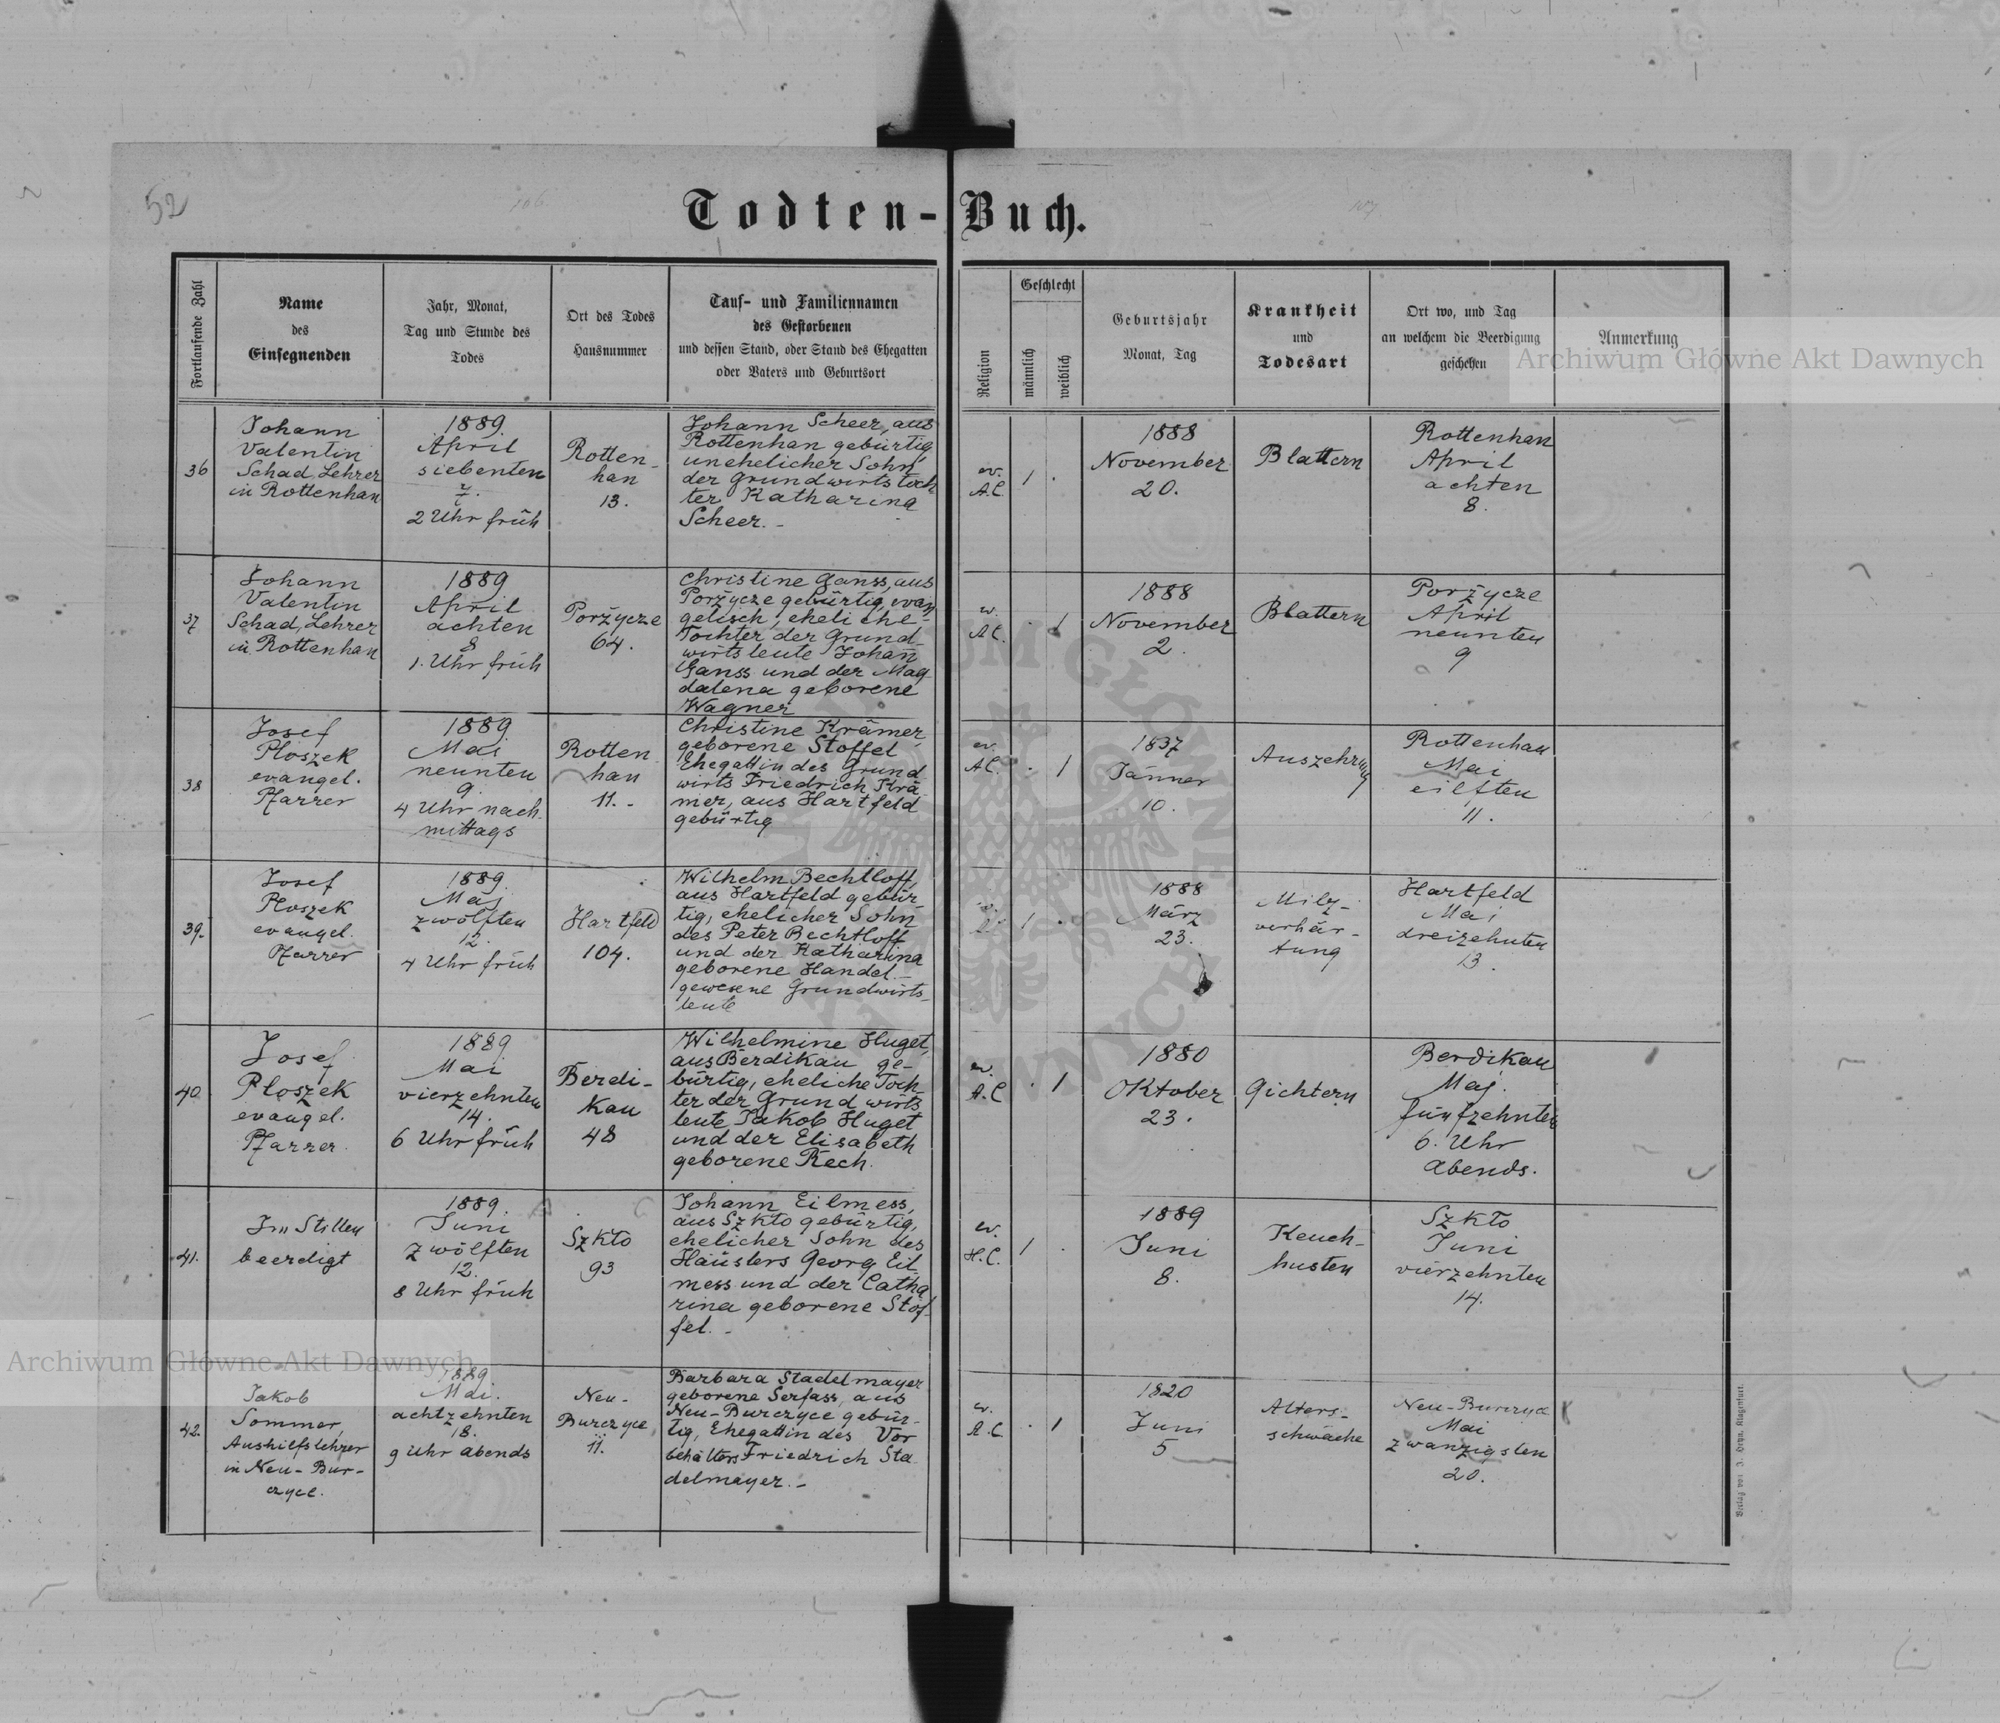 52
106
107
Todten-Buch.
Fortlaufende Zahl
Name
des
Einsegnenden
Jahr, Monat,
Tag und Stunde des
Todes
Ort des Todes
Hausnummer
Tauf- und Familiennamen
des Gestorbenen
und dessen Stand, oder Stand des Ehegatten
oder Vaters und Geburtsort
Religion
Geschlecht
männlich
weiblich
Geburtsjahr
Monat, Tag
Krankheit
und
Todesart
Ort wo, und Tag
an welchem die Beerdigung
geschehen
Anmerkung
Archiwum Główne Akt Dawnych
36
Johann
Valentin
Schad, Lehrer
in Rottenhan
1889
April
siebenten
7.
2 Uhr früh
Rotten-
han
13.
Johann Scheer, aus
Rottenhan gebürtig,
unehelicher Sohn
der Grundwirtstoch
ter Katharina
Scheer. -
ev.
A.C.
1 .
1888
November
20.
Blattern
Rottenhan
April
achten
8.
37
Johann
Valentin
Schad, Lehrer
in Rottenhan
1889
April
achten
8
1. Uhr früh
Porżycze
64.
Christine Ganss, aus
Porżycze gebürtig, evan
gelisch, eheliche
Tochter der Grund
wirtsleute Johañ
Ganss und der Mag
dalena geborene
Wagner
ev.
A.C.
. 1
1888
November
2.
Blattern
Porżycze
April
neunten
9
38
Josef
Ploszek
evangel.
Pfarrer
1889
Mai
neunten
9.
4 Uhr nach
mittags
Rotten
han
11. -
Christine Krämer
geborene Stoffel
Ehegattin des Grund
wirts Friedrich Krä
mer, aus Hartfeld
gebürtig
ev.
A.C.
. 1
1837
Jänner
10.
Auszehrung
Rottenhan
Mai
eilften
11.
39.
Josef
Ploszek
evangel.
Pfarrer
1889
Mai
zwölften
12.
4 Uhr früh
Hartfeld
104.
Wilhelm Bechtloff
aus Hartfeld gebür-
tig, ehelicher Sohn
des Peter Bechtloff
und der Katharina
geborene Handel
gewesene Grundwirts-
leute
1 .
1888
März
23.
Milz-
verhär-
tung
Hartfeld
Mai
dreizehnten
13.
40.
Josef
Ploszek
evangel.
Pfarrer
1889
Mai
vierzehnten
14.
6 Uhr früh
Berdi-
kau
48
Wilhelmine Huget,
aus Berdikau ge-
bürtig, eheliche Toch
ter der Grundwirts
leute Jakob Huget
und der Elisabeth
geborene Rech.
ev.
A.C
. 1
1880
Oktober
23.
Gichtern
Berdikau
Mai
fünfzehnten
6. Uhr
abends.
41.
Im Stillen
beerdigt
1889.
Juni
zwölften
12.
8 Uhr früh
Szkło
93
Johann Eilmess,
aus Szkło gebürtig,
ehelicher Sohn des
Häuslers Georg Eil
mess und der Catha
rina geborene Stof-
fel. -
ev.
H.C.
1 .
1889
Juni
8.
Keuch-
husten
Szkło
Juni
vierzehnten
14.
42.
Jakob
Sommer,
Aushilfslehrer
in Neu-Bur-
czyce.
1889
Mai.
achtzehnten
18.
9 Uhr abends
Neu-
Burczyce
11.
Barbara Stadelmayer
geborene Serfass, aus
Neu-Burczyce gebür-
tig, Ehegattin des Vor
behälters Friedrich Sta
delmayer. -
ev.
A.C.
. 1
1820
Juni
5
Alters-
schwäche
Neu-Burczyce
Mai
zwanzigsten
20.
Archiwum Główne Akt Dawnych
Verlag von J. Heyn, Klagenfurt.